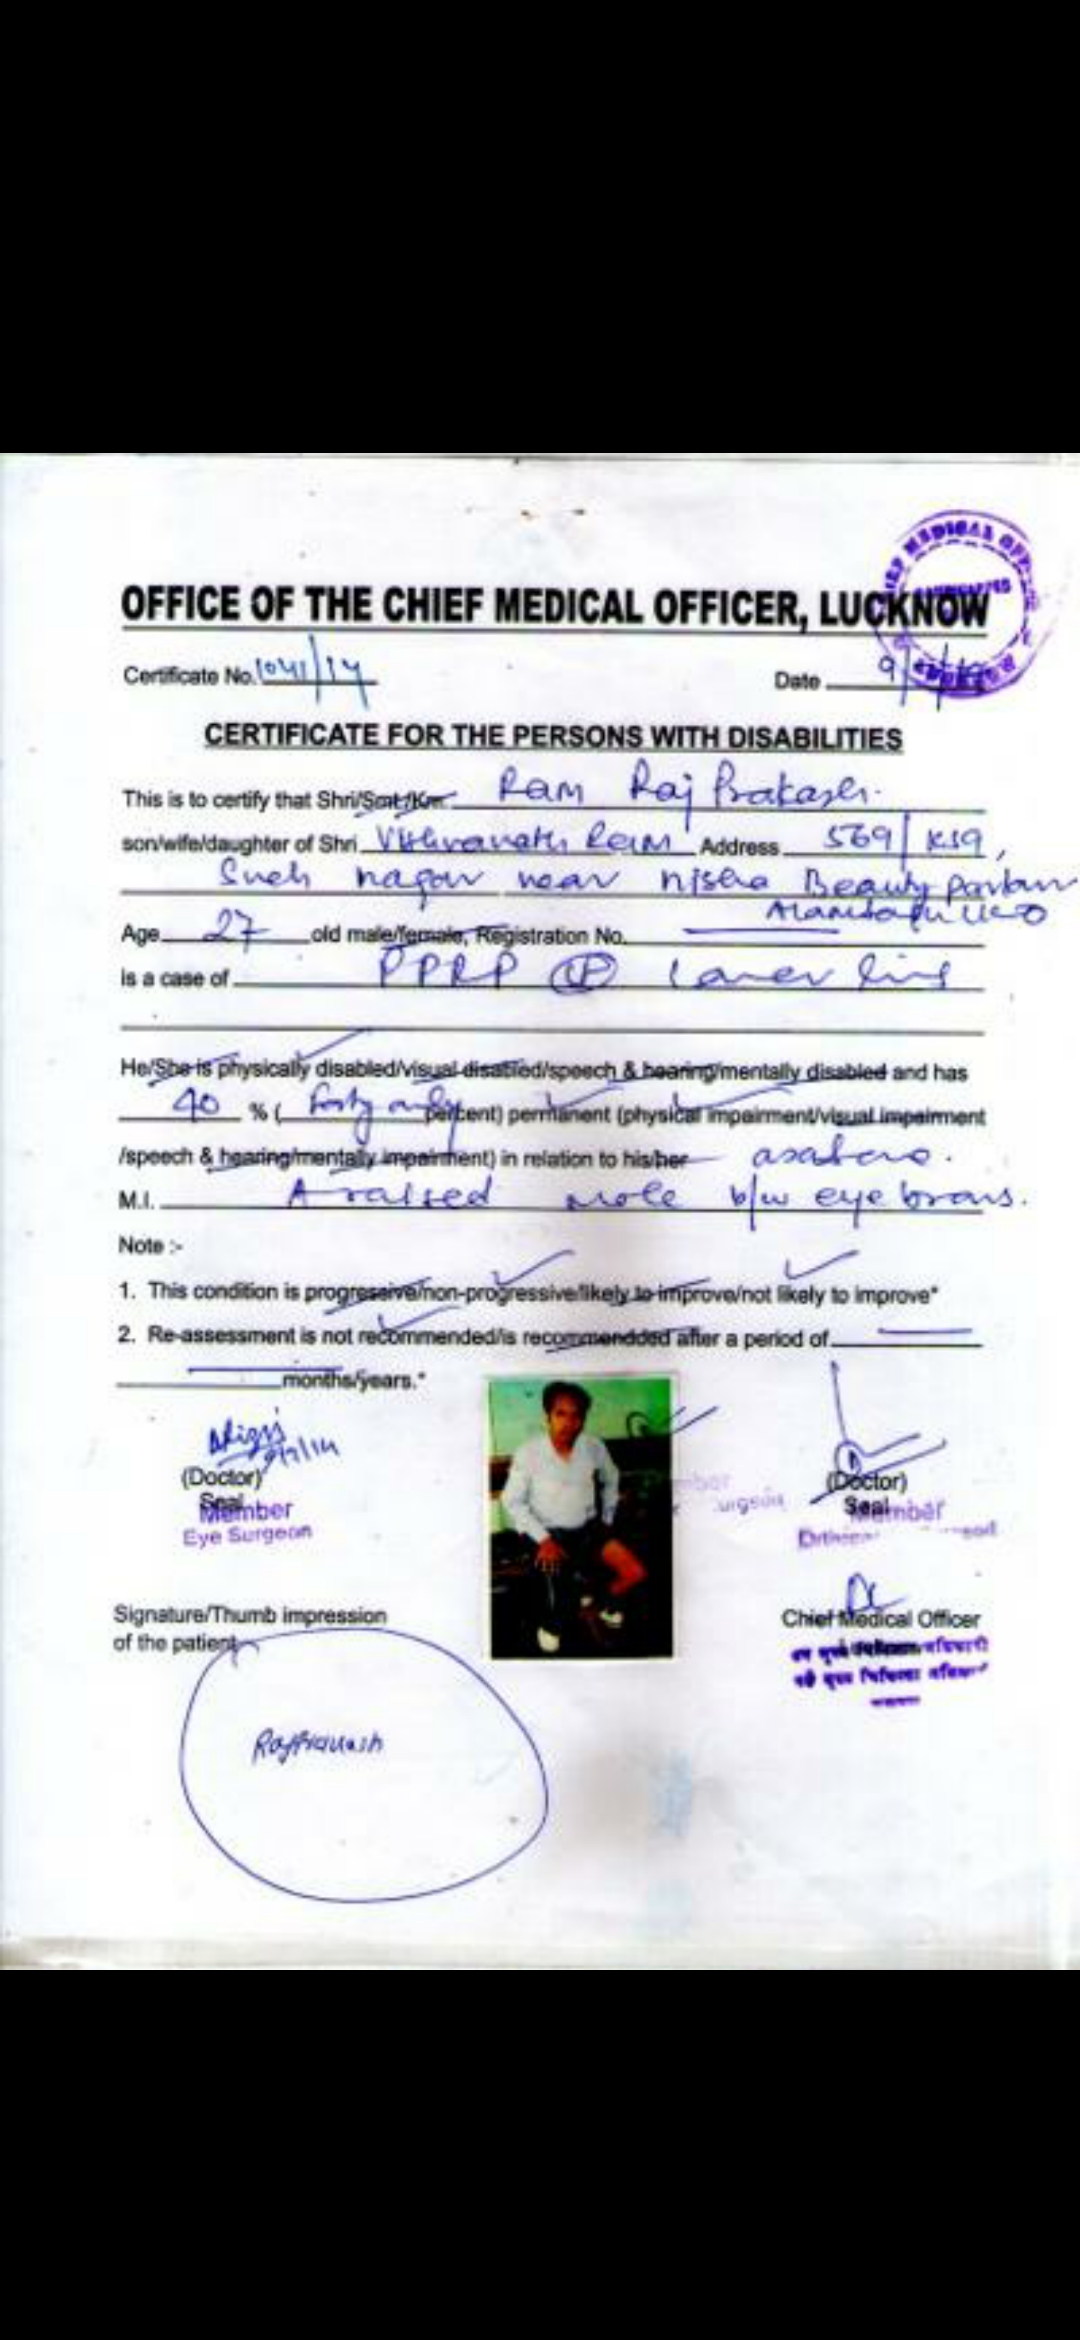 MEDICAL OFF
OFFICE OF THE CHIEF MEDICAL OFFICER, LUCKNOW
Certificate No. 1041/14 Date 9/
CERTIFICATE FOR THE PERSONS WITH DISABILITIES
This is to certify that Shri/Smt./Km. Ram Raj Prakash.
son/wife/daughter of Shri Vishvanath Ram Address 569/K59,
Sneh nagar near nisha Beauty parlour
Age 27 old male/female, Registration No.
is a case of PPRP lower limb
He/She is physically disabled/visual disabled/speech & hearing/mentally disabled and has
40 % ( forty only percent) permanent (physical impairment/visual impairment
/speech & hearing/mentally impairment) in relation to his/her as above.
M.I. A raised mole b/w eye brows.
Note :-
1. This condition is progressive/non-progressive/likely to improve/not likely to improve*
2. Re-assessment is not recommended/is recommendded after a period of
months/years.*
9/7/14
(Doctor) (Doctor)
Seal Seal
Member Member
Eye Surgeon
Signature/Thumb impression
of the patient
Chief Medical Officer